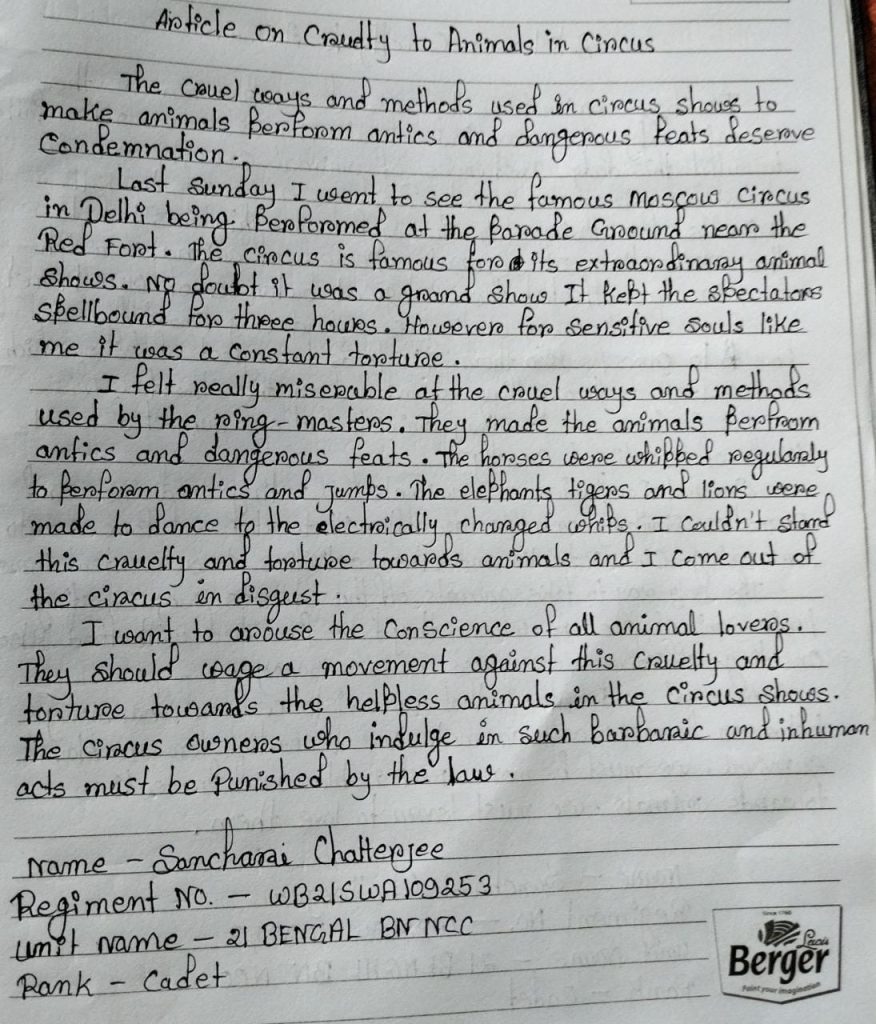 Article on Cruelty to Animals in Circus
The cruel ways and methods used in circus shows to
make animals perform antics and dangerous feats deserve
Condemnation.
Last Sunday I went to see the famous Moscow Circus
in Delhi being performed at the Parade Ground near the
Red Fort. The circus is famous for its extraordinary animal
shows. No doubt it was a grand show It kept the spectators
spellbound for three hours. However for sensitive souls like
me it was a constant torture.
I felt really miserable at the cruel ways and methods
used by the ring-masters. They made the animals perfrom
antics and dangerous feats. The horses were whipped regularly
to perform antics and jumps. The elephants tigers and lions were
made to dance to the electrically charged whips. I couldn't stand
this cruelty and torture towards animals and I come out of
the circus in disgust.
I want to arouse the conscience of all animal lovers.
They should wage a movement against this cruelty and
torture towards the helpless animals in the circus shows.
The circus owners who indulge in such barbaric and inhuman
acts must be punished by the law.
Name - Sanchari Chatterjee
Regiment No. - WB21SWA109253
Unit name - 21 BENGAL BN NCC
Rank - Cadet
Since 1760
Lewis
Berger
Paint your imagination